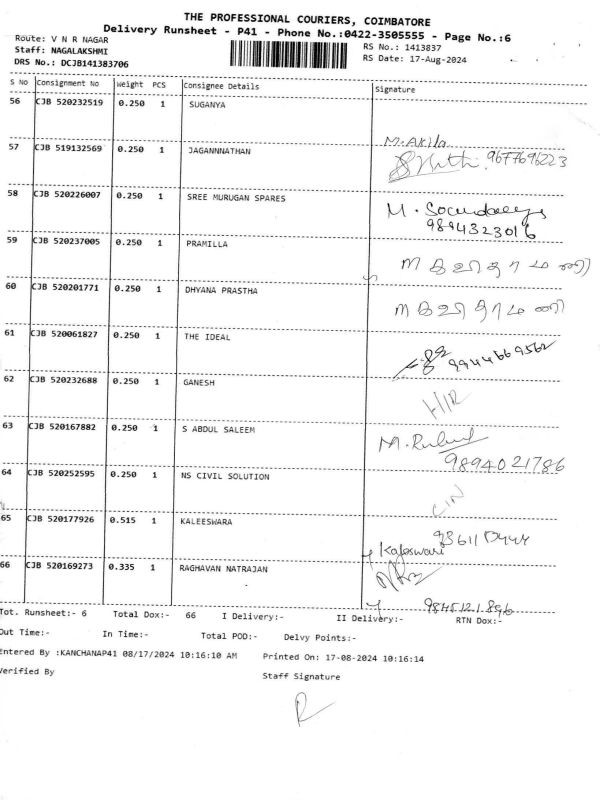 THE PROFESSIONAL COURIERS, COIMBATORE
Delivery Runsheet - P41 - Phone No.:0422-3505555 - Page No.:6
Route: V N R NAGAR
RS No.: 1413837
Staff: NAGALAKSHMI
RS Date: 17-Aug-2024
DRS No.: DCJB141383706
S No Consignment No Weight PCS Consignee Details Signature
56 CJB 520232519 0.250 1 SUGANYA
M. Akila
57 CJB 519132569 0.250 1 JAGANNNATHAN 9677696223
58 CJB 520226007 0.250 1 SREE MURUGAN SPARES M.
9894323016
59 CJB 520237005 0.250 1 PRAMILLA
60 CJB 520201771 0.250 1 DHYANA PRASTHA
61 CJB 520061827 0.250 1 THE IDEAL 9944669562
62 CJB 520232688 0.250 1 GANESH
63 CJB 520167882 0.250 1 S ABDUL SALEEM M.
9894021786
64 CJB 520252595 0.250 1 NS CIVIL SOLUTION
65 CJB 520177926 0.515 1 KALEESWARA
Kaleswari
66 CJB 520169273 0.335 1 RAGHAVAN NATRAJAN
Tot. Runsheet:- 6 Total Dox:- 66 I Delivery:- II Delivery:- RTN Dox:-
Out Time:- In Time:- Total POD:- Delvy Points:-
Entered By :KANCHANAP41 08/17/2024 10:16:10 AM Printed On: 17-08-2024 10:16:14
Verified By Staff Signature